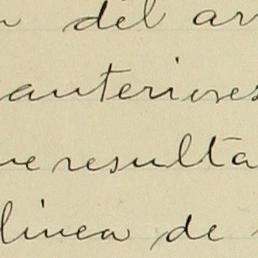 del ar
anteriores
ue resulta
linea de